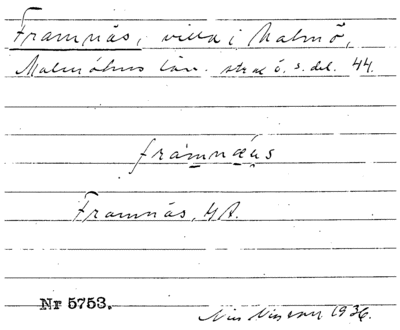 Framnäs, villa i Malmö,
Malmöhus län. strax ö. s. del. 44.
framnäus
Framnäs, HA.
Nr 5753.
Nils Nilsson 1936.